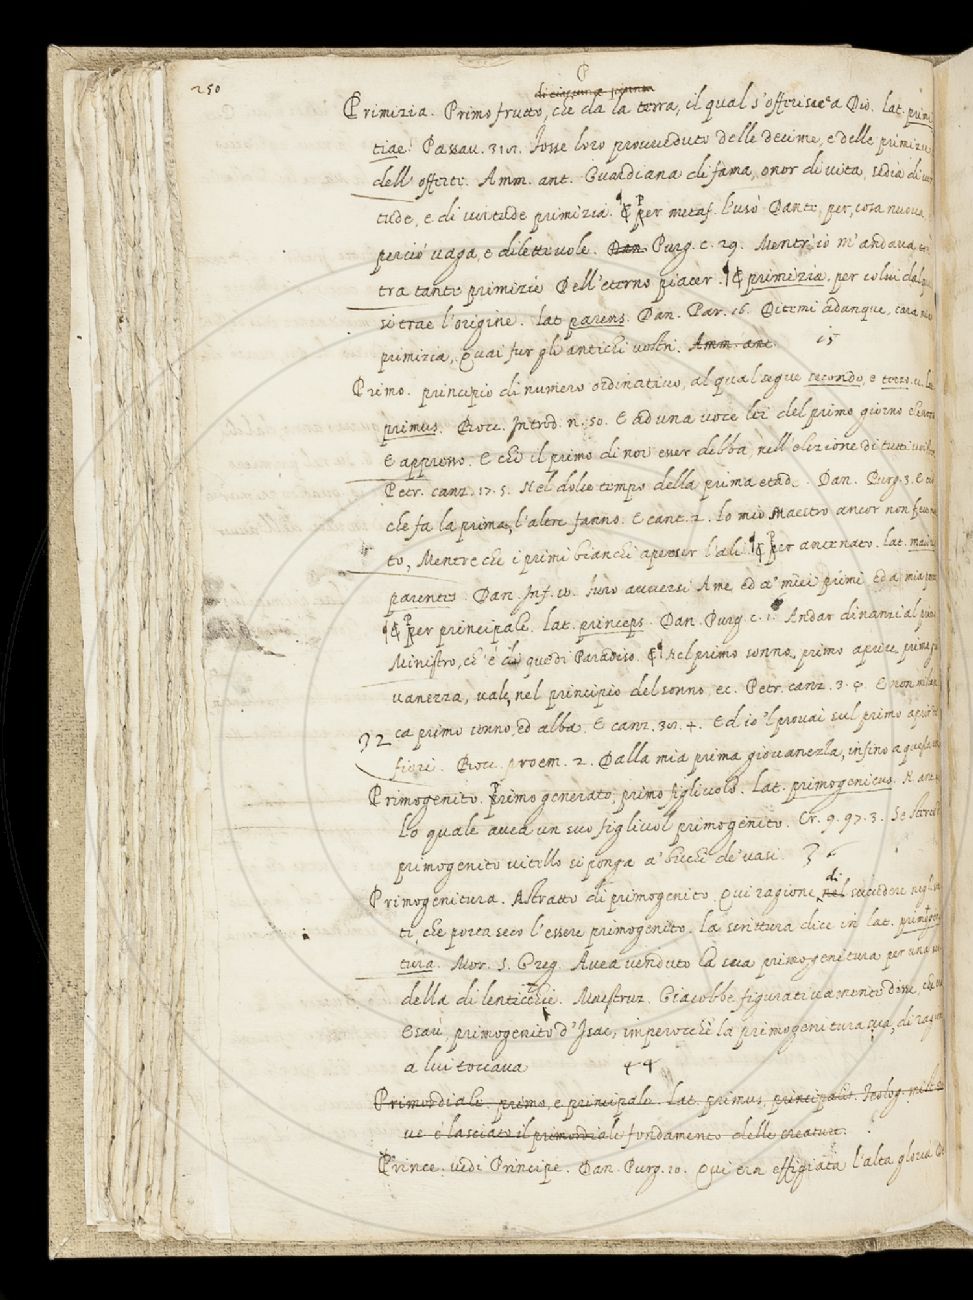 250
P
di ciascuno
Primizia. Primo frutto, che da la terra, il qual s'offerisce a Dio. lat. primi
tiae. Passav. 311. fosse loro proveduto delle decime, e delle primizie
dell' offerte. Amm. ant. Guardiana di fama, onor di vita, sedia di vir
tude, e di virtude primizia. ¶ E per metaf. l'usò Dante, per, cosa nuova,
perciò vaga, e dilettevole. Dan. Purg. c. 29. Mentr'io m'andava
tra tante primizie Dell'eterno piacer. ¶ E primizia, per colui dal
si trae l'origine. lat. parens. Dan. Par. 16. Ditemi adunque, cara mia
primizia, Quai fur gli antichi vostri. Amm. ant. 15
Primo. principio di numero ordinativo, al qual segue secondo, e terzo.
primus. Bocc. Introd. n. 50. E ad una voce lei del primo giorno
E appresso. E che il primo di noi esser debba, nell'elezione di tutti
Petr. canz. 17. 5. Nel dolce tempo della prima etade. Dan. Purg. 3. E ciò
che fa la prima, l'altre fanno. E cant. 2. Lo mio Maestro ancor non
to, Mentre che i primi bianchi aperser l'ali. ¶ E per antenato. lat.
parentes. Dan. Inf. 10. furo avversi A me, ed a' miei primi, ed a mia
¶ E per principale. lat. princeps. Dan. Purg. c. 1. Andar dinanzi al primo
Ministro, ch'è di que di Paradiso. E ¶ Nel primo sonno, primo aprile, prima
vanezza, vale, nel principio del sonno, ec. Petr. canz. 3. E non
ca primo sonno, ed alba. E canz. 4. Ed io 'l provai sul primo aprir
32
fiori. Bocc. proem. 2. Dalla mia prima giovanezza, insino a questo
Primogenito. Primo generato, primo figliuolo. Lat. primogenitus.
Lo quale avea un suo figliuol primogenito. Cr. 9. 97. 3. Se
primogenito vitello si ponga a' bucchi de' vasi. 3
di
Primogenitura. Astratto di primogenito. Qui ragione nel succedere negli
ti, che porta seco l'essere primogenito. La scrittura dice in lat. primogeni
tura. Mor. S. Greg. Avea venduto la sua primogenitura per una
della di lenticchie. Maestruz. Giacobbe figurativamente disse,
Esaù, primogenito d'Isac, imperocchè la primogenitura sua, di ragione
a lui toccava 44
Primordiale. primo, e principale. Lat. primus, principalis.
ve è lasciato il primordiale fondamento delle creature.
Prince. vedi Principe. Dan. Purg. 10. Qui era effigiata l'alta gloria